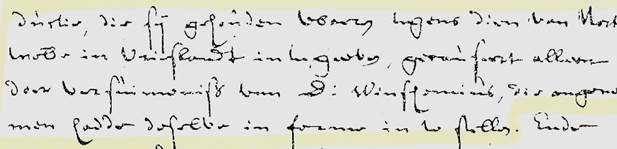 ductie, die sij gehouden waren tegens dien van Nort
wolde in Vrieslandt in te geven, gecauseert alleen
door versuimeniss van D: Winschemius, die angeno
men hadde deselve in forme in te stellen. Ende